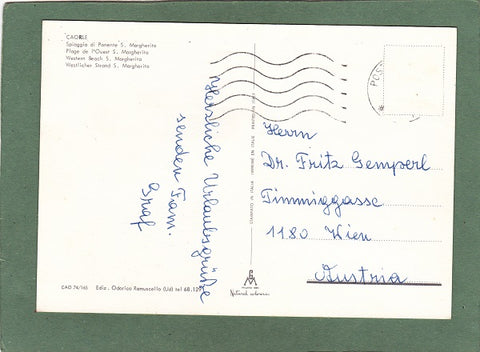 CAORLE
Spiaggia di Ponente S. Margherita
Plage de l'Ouest S. Margherita
Western Beach S. Margherita
Westlicher Strand S. Margherita
Herzliche Urlaubsgrüße
senden Fam.
Graf
POST
Herrn
Dr. Fritz Gemperl
Timmiggasse
1180 Wien
Austria
CAO 74/165 Ediz. Odorico Ramuscello (Ud) tel 68.129